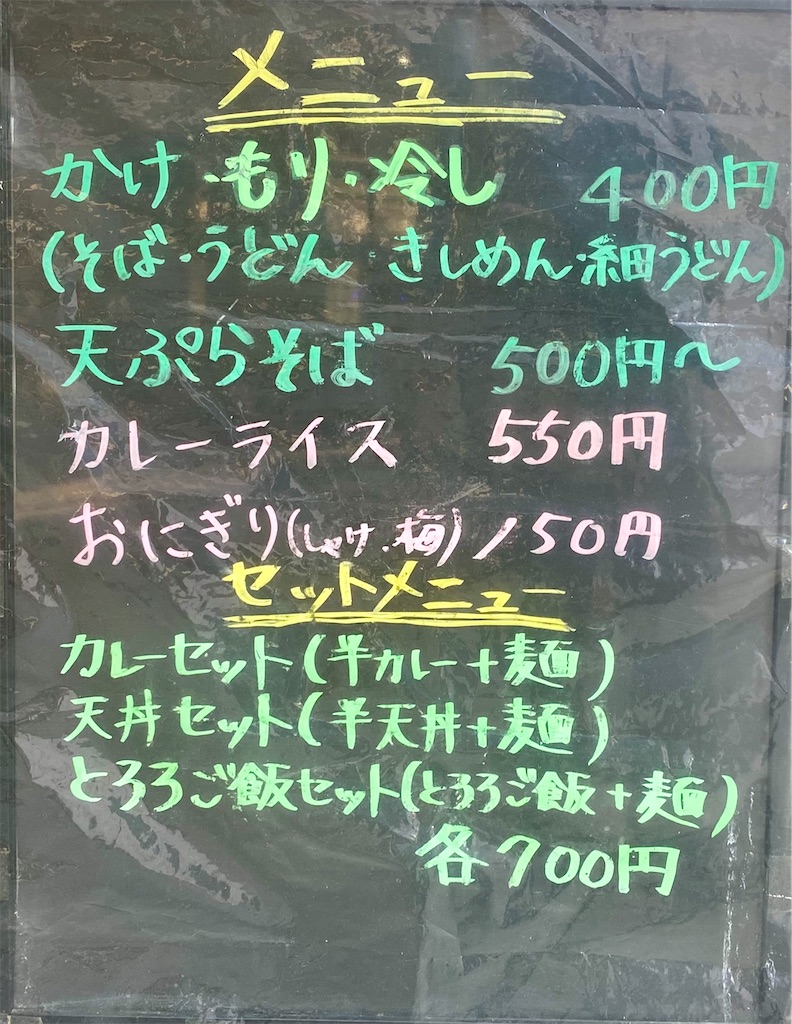 メニュー
かけ・もり・冷し 400円
(そば・うどん・きしめん・細うどん)
天ぷらそば 500円〜
カレーライス 550円
おにぎり(しゃけ.梅) 150円
セットメニュー
カレーセット(半カレー+麺)
天丼セット(半天丼+麺)
とろろご飯セット(とろろご飯+麺)
各700円